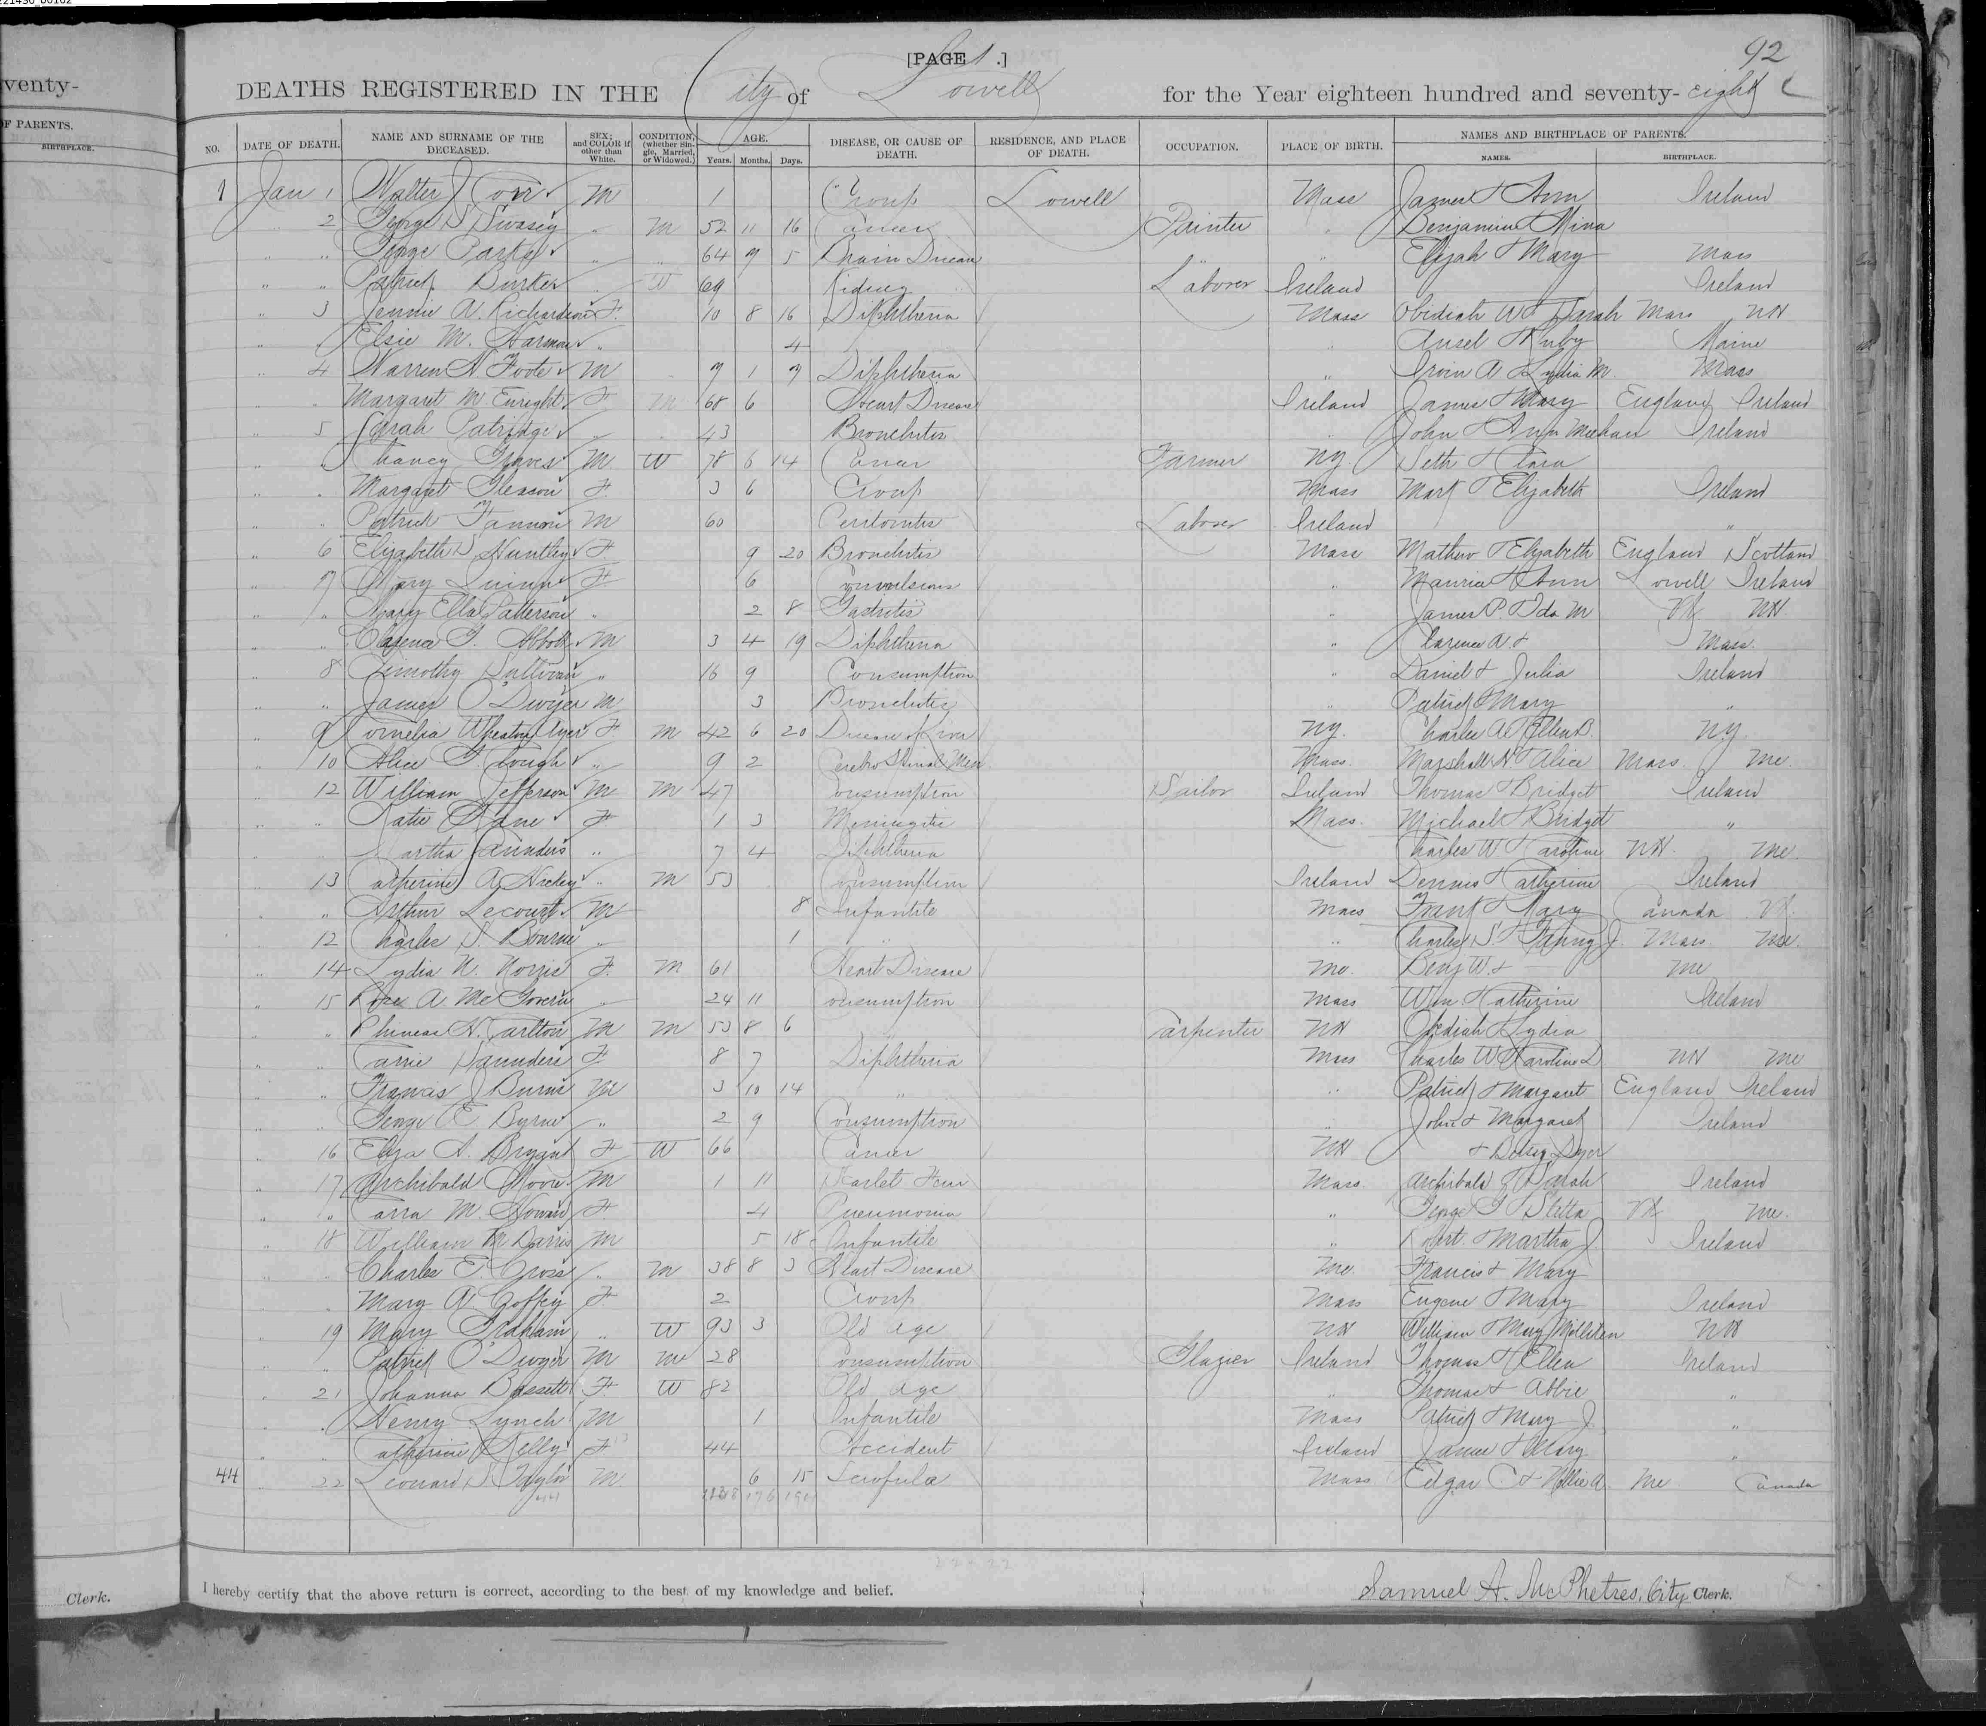 venty-
OF PARENTS.
BIRTHPLACE.
Clerk.
92
[PAGE 1.]
DEATHS REGISTERED IN THE City of Lowell for the Year eighteen hundred and seventy- eight
NO. DATE OF DEATH. NAME AND SURNAME OF THE DECEASED. SEX; and COLOR if other than White. CONDITION, (whether Single, Married, or Widowed.) AGE. Years. Months. Days. DISEASE, OR CAUSE OF DEATH. RESIDENCE, AND PLACE OF DEATH. OCCUPATION. PLACE OF BIRTH. NAMES AND BIRTHPLACE OF PARENTS. NAMES. BIRTHPLACE.
1 Jan 1 Walter J Corr M 1 Croup Lowell Mass James & Ann Ireland
" 2 George S Swasey " M 52 11 16 Cancer Painter " Benjamin & Mina
" " George Parks " " 64 9 5 Brain Disease " " Elijah & Mary Mass
" " Patrick Burke " W 69 Kidney " Laborer Ireland Ireland
" 3 Jennie A. Richardson F. 10 8 16 Diphtheria Mass Obidiah W & Sarah Mass NH
" " Elsie M. Harmon " 4 " Ansel & Ruby Maine
" 4 Warren H Foote M 7 1 7 Diphtheria " Irvin A & Lydia M. Mass
" Margaret M Enright F M 68 6 Heart Disease Ireland James & Mary England Ireland
" 5 Sarah Patridge " 43 Bronchitis " John & Ann Meehan Ireland
" " Chancy Graves M W 78 6 14 Cancer Farmer NY Seth & Clara
" " Margaret Gleason F. 3 6 Croup Mass Mark & Elizabeth Ireland
" " Patrick Fannon M 60 Peritonitis Laborer Ireland "
" 6 Elizabeth S Huntley F 9 20 Bronchitis Mass Mathew & Elizabeth England Scotland
" 7 Mary Quinn F 6 Convulsions " Maurice & Ann Lowell Ireland
" " Mary Ella Patterson " 2 8 Gastritis " James P. & Ida M Vt NH
" " Clarence F. Abbott M 3 4 19 Diphtheria " Clarence A. & Mass.
" 8 Timothy Sullivan " 16 9 Consumption " Daniel & Julia Ireland
" " James O'Dwyer M 3 Bronchitis " Patrick & Mary "
" 9 Cornelia Wheaton Ayer F M 42 6 20 Disease of Liver NY. Charles A & Ellen B. NY.
" 10 Alice F. Clough " 9 2 Cerebro Spinal Men Mass. Marshall H & Alice Mass. Me.
" 12 William Jefferson M M 47 Consumption Sailor Ireland Thomas & Bridget Ireland
" " Katie Kane F 1 3 Meningitis Mass. Michael & Bridget "
" " Martha Saunders " 7 4 Diphtheria Charles W & Caroline NH. Me.
" 13 Catherine A Hickey " M 53 Consumption Ireland Dennis & Catherine Ireland
" " Arthur Lecourt M 8 Infantile Mass Frank & Mary Canada Vt.
" 12 Charles S. Bourne " 1 " " Charles S. & Fanny J. Mass. Me.
" 14 Lydia N. Norris F. M 61 Heart Disease Me. Benj W. & Me
" 15 Rose A. McGovern " 24 11 Consumption Mass Wm & Catherine Ireland
" " Phineas H. Carlton M M 53 8 6 Carpenter NH Obediah & Lydia
" " Carrie Saunders F 8 7 Diphtheria Mass Charles W & Caroline D NH Me
" " Francis J Burns M 3 10 14 " " Patrick & Margaret England Ireland
" " George E Byrne " 2 9 Consumption " John & Margaret Ireland
" 16 Eliza A. Bryant F W 66 Cancer NH & Betsey Dyer
" 17 Archibald Moore M 1 11 Scarlet Fever Mass. Archibald & Sarah Ireland
" " Carra M. Howard F. 4 Pneumonia " George F & Stella Vt Me.
" 18 William M Darris M 5 18 Infantile " Robert & Martha J. Ireland
" " Charles E. Cross " M 38 8 3 Heart Disease Me. Francis & Mary
" Mary A. Coffey F 2 Croup Mass Eugene & Mary Ireland
" 19 Mary Graham " W 93 3 Old Age NH William & Mary Milliken NH
" " Patrick O'Dwyer M M 28 Consumption Glazier Ireland Thomas & Ellen Ireland
" 21 Johanna Bassett F. W 82 Old Age " Thomas & Abbie "
" " Henry Lynch M 1 Infantile Mass Patrick & Mary J. "
" " Catherine Kelly F 44 Accident Ireland James & Mary "
44 " 22 Leonard S Taylor M. 6 15 Scrofula Mass Edgar C. & Nellie A. Me Canada
I hereby certify that the above return is correct, according to the best of my knowledge and belief.
Samuel A. McPhetres, City Clerk.